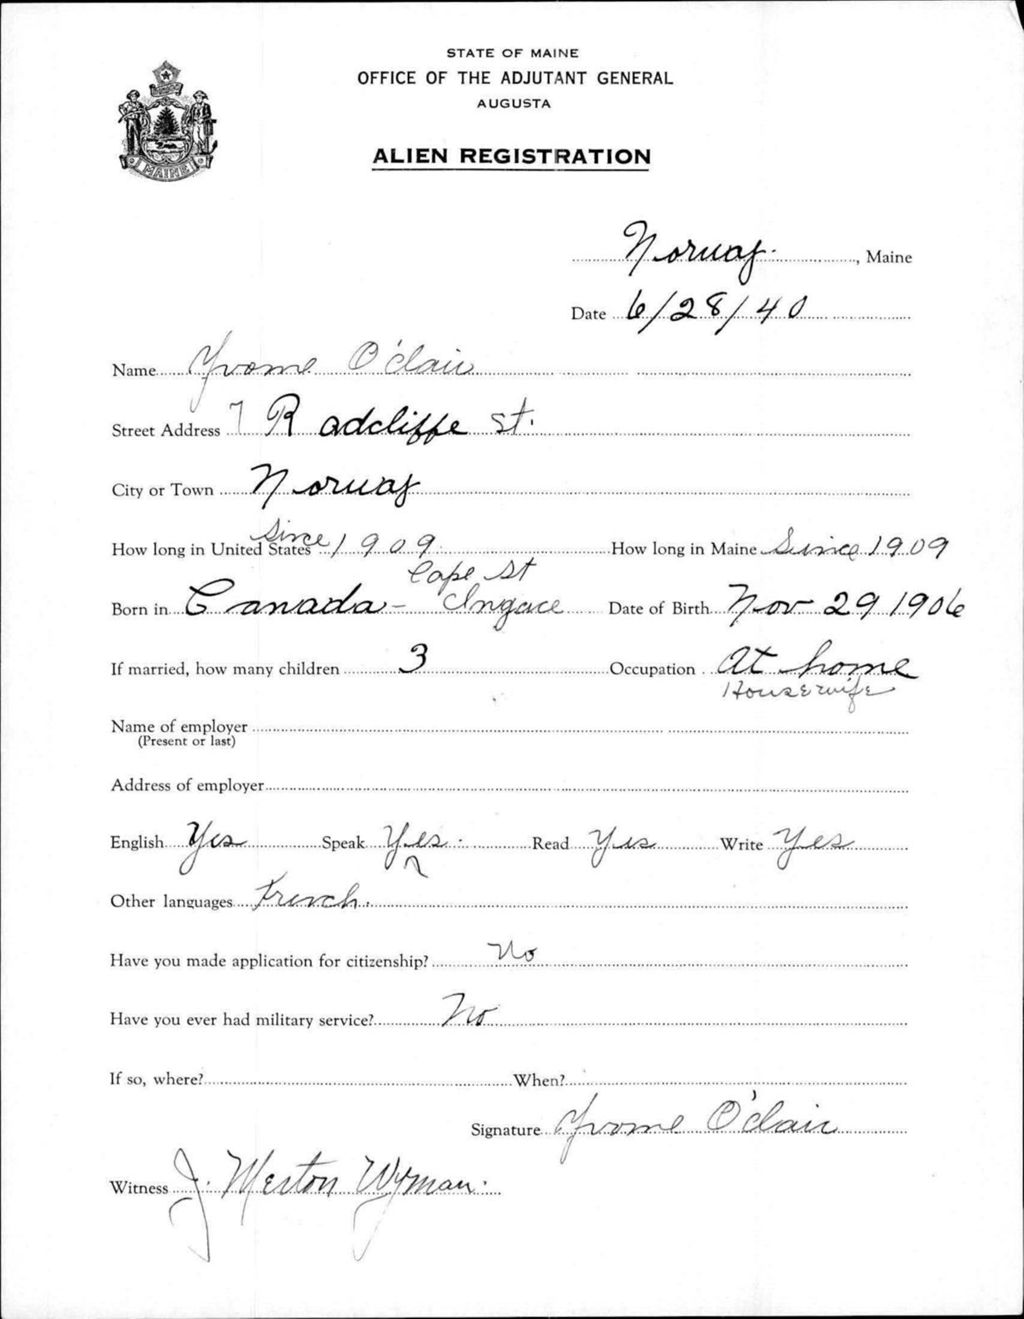 STATE OF MAINE
OFFICE OF THE ADJUTANT GENERAL
AUGUSTA
ALIEN REGISTRATION
MAINE
Norway, Maine
Date 6/28/40
Name Yvonne O'clair
Street Address 7 Radcliffe St.
City or Town Norway
How long in United States Since 1909 How long in Maine Since 1909
Cape St
Born in Canada - Ingace Date of Birth Nov 29 1906
If married, how many children 3 Occupation At home
Housewife
Name of employer
(Present or last)
Address of employer
English Yes Speak Yes. Read Yes Write Yes
Other languages French.
Have you made application for citizenship? No
Have you ever had military service? No
If so, where? When?
Signature Yvonne O'clair
Witness J. Merton Wyman.